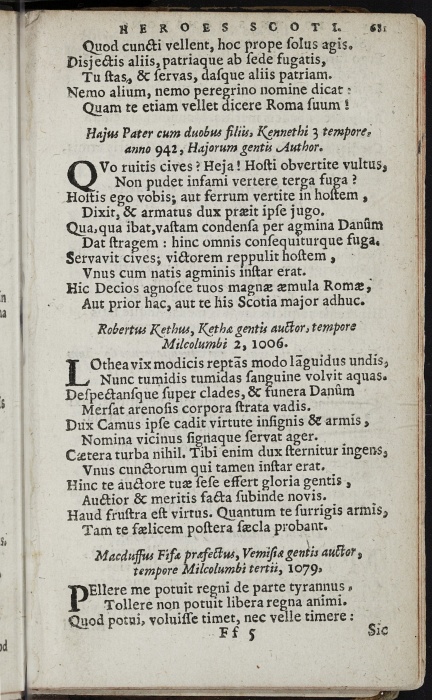 HEROES SCOTI. 681
Quod cuncti vellent, hoc prope ſolus agis.
Disjectis aliis, patriaque ab ſede fugatis,
Tu ſtas, & ſervas, daſque aliis patriam.
Nemo alium, nemo peregrino nomine dicat:
Quam te etiam vellet dicere Roma ſuum!
Hajus Pater cum duobus filiis, Kennethi 3 tempore,
anno 942, Hajorum gentis Author.
QVo ruitis cives? Heja! Hoſti obvertite vultus,
Non pudet infami vertere terga fuga?
Hoſtis ego vobis; aut ferrum vertite in hoſtem,
Dixit, & armatus dux præit ipſe jugo.
Qua, qua ibat, vaſtam condenſa per agmina Danûm
Dat ſtragem: hinc omnis conſequiturque fuga.
Servavit cives; victorem reppulit hoſtem,
Vnus cum natis agminis inſtar erat.
Hic Decios agnoſce tuos magnæ æmula Romæ,
Aut prior hac, aut te his Scotia major adhuc.
Robertus Kethus, Kethæ gentis auctor, tempore
Milcolumbi 2, 1006.
LOthea vix modicis reptãs modo lãguidus undis,
Nunc tumidis tumidas ſanguine volvit aquas.
Deſpectanſque ſuper clades, & funera Danûm
Merſat arenoſis corpora ſtrata vadis.
Dux Camus ipſe cadit virtute inſignis & armis,
Nomina vicinus ſignaque ſervat ager.
Cætera turba nihil. Tibi enim dux ſternitur ingens,
Vnus cunctorum qui tamen inſtar erat.
Hinc te auctore tuæ ſeſe effert gloria gentis,
Auctior & meritis facta ſubinde novis.
Haud fruſtra eſt virtus. Quantum te ſurrigis armis,
Tam te fælicem poſtera ſæcla probant.
Macduffus Fifæ præfectus, Vemiſiæ gentis auctor,
tempore Milcolumbi tertii, 1079.
PEllere me potuit regni de parte tyrannus,
Tollere non potuit libera regna animi.
Quod potui, voluiſſe timet, nec velle timere:
Ff 5 Sic